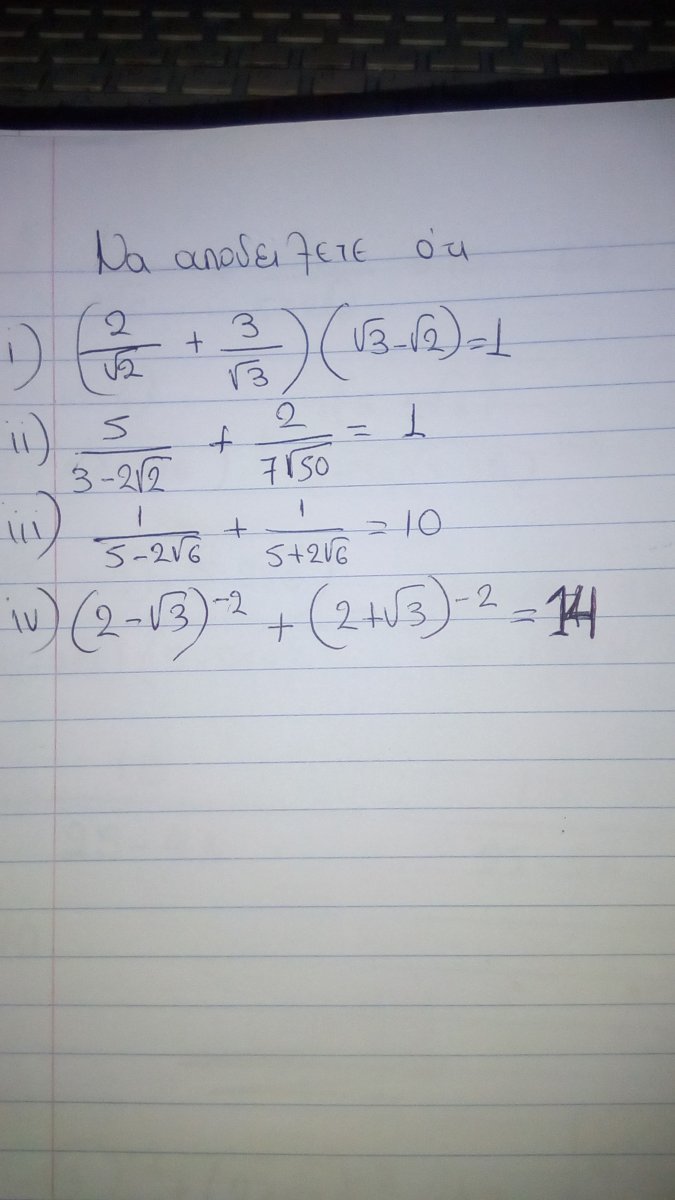 Να αποδείξετε ότι
i) (2/√2 + 3/√3)(√3-√2)=1
ii) 5/(3-2√2) + 2/(7√50) = 1
iii) 1/(5-2√6) + 1/(5+2√6) = 10
iv) (2-√3)^-2 + (2+√3)^-2 = 14